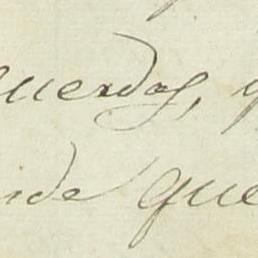 uerdas,
nde que